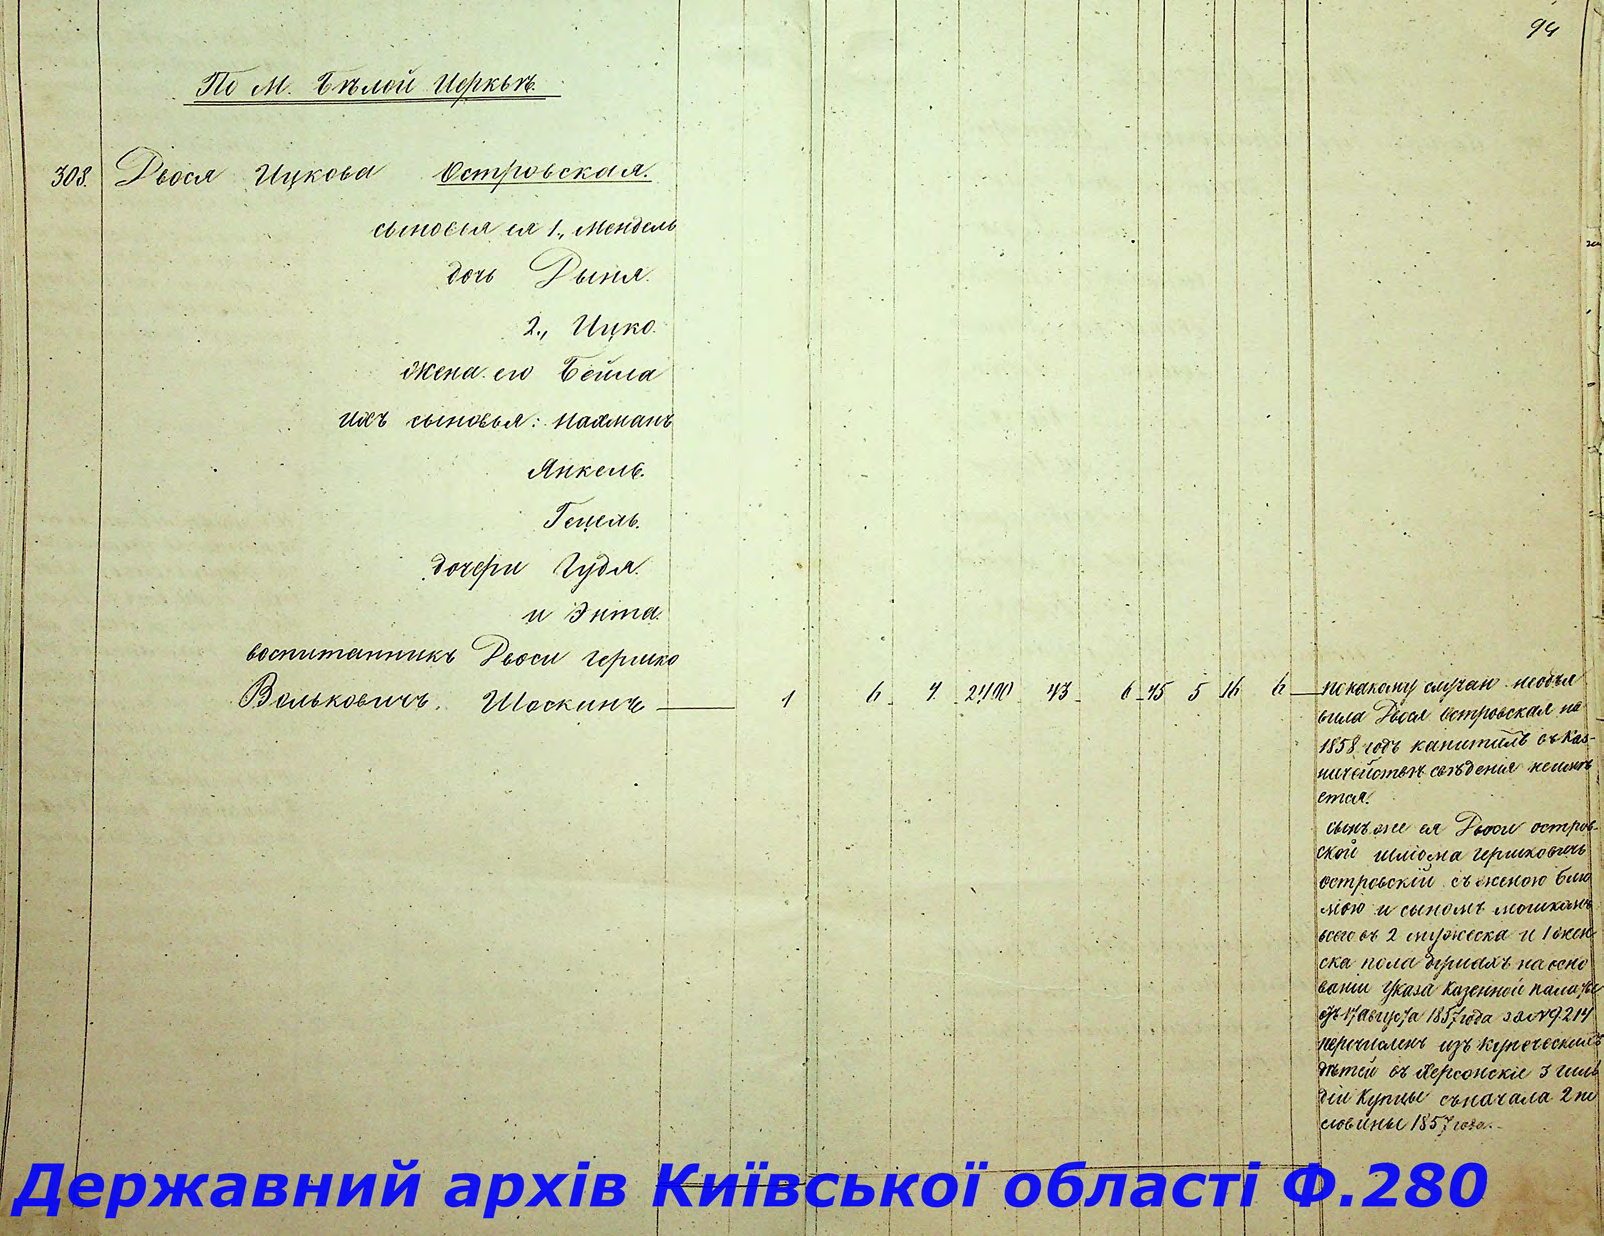 94
По М. Бѣлой Церквѣ.
308. Двося Ицкова Островская.
сыновья ея 1., Мендель
дочь Рыня.
2., Ицко.
жена его Бейла
ихъ сыновья: Нахманъ
Янкель.
Гецель.
дочери Гудя.
и Энта.
воспитанникъ Двоси Гершко
Вольковичъ. Шоскинъ 1 6 4 2400 43 6 45 5 16 6
по какому случаю необъя
вила Двося Островская на
1858 годъ капиталъ въ Каз-
ничействѣ свѣденія неимѣ
ется.
сынъ же ея Двоси остров-
ской Шліома Гершковичъ
островскій съ женою Блю
мою и сыномъ мошкомъ
всего въ 2 мужеска и 1 жен
ска пола душахъ на осно
ваніи Указа Казенной палаты
отъ 17 Августа 1857 года за № 9214
перечисленъ изъ купеческихъ
дѣтей въ Херсонскіе 3 гиль
діи Купцы съначала 2 по
ловины 1857 года.
Державний архів Київської області Ф.280